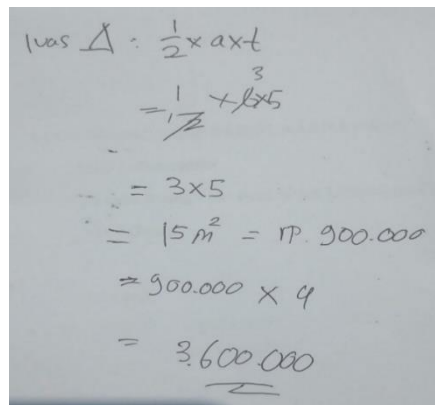 luas Δ : 1/2 x a x t
3
= 1/2 x 6x5
1
= 3x5
= 15 m² = rp. 900.000
= 900.000 x 4
= 3.600.000